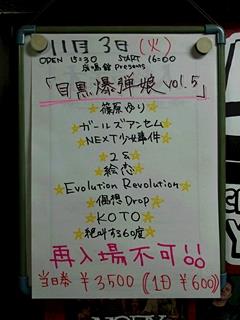 11月3日(火)
OPEN 15:30 START 16:00
鹿鳴館 Presents
「目黒爆弾娘 vol.5」
篠原ゆり
ガールズアンセム
NEXT少女事件
2&
絵恋
Evolution Revolution
偶想Drop
KOTO
絶叫する60度
再入場不可!!
当日券 ¥3500 (1D ¥600)